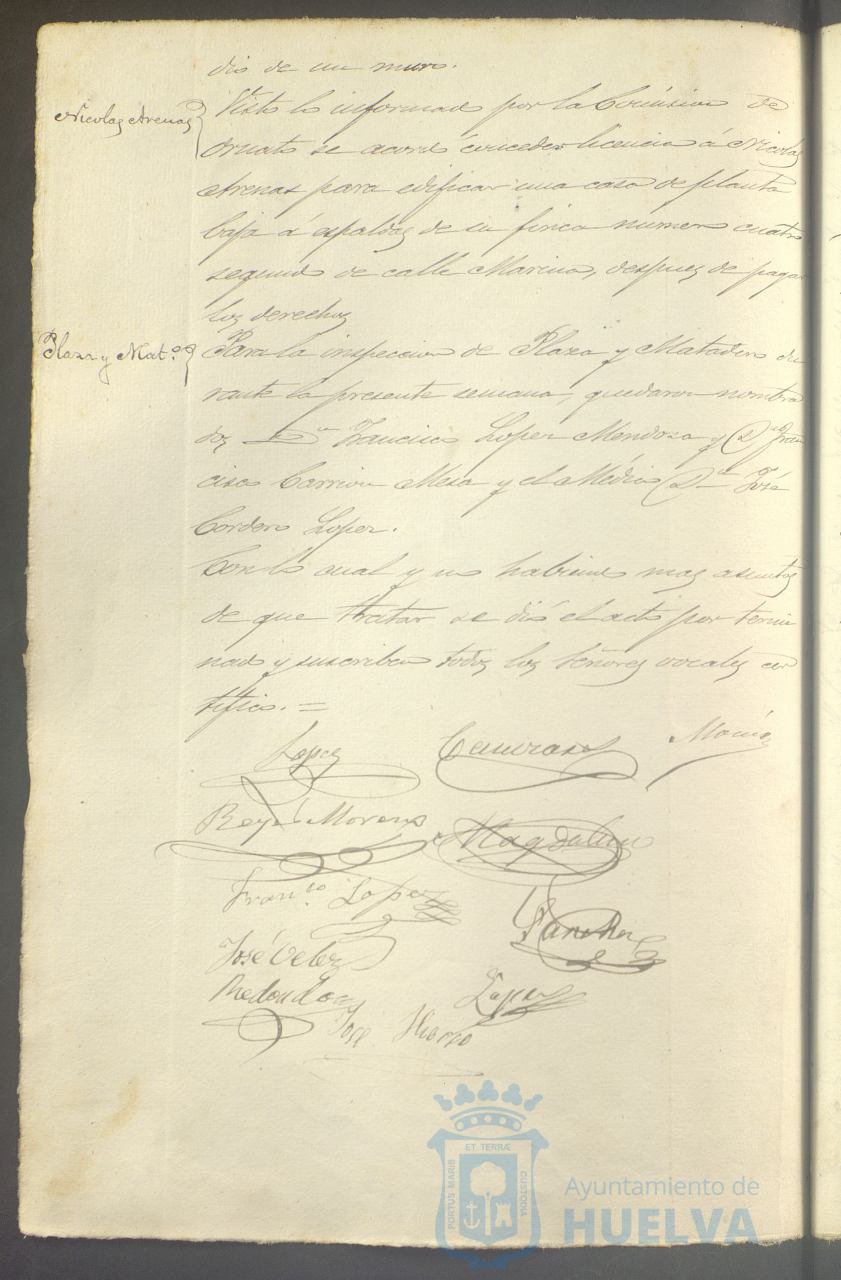 dio de un muro.
Nicolas Arenas
Visto lo informado por la Comision de
Ornato se acordó conceder licencia á Nicolas
Arenas para edificar una casa de planta
baja á espaldas de su finca numero cuatro
segundo de calle Marina, despues de pagar
los derechos
Plaza y Mat.º
Para la inspeccion de Plaza y Matadero du
rante la presente semana, quedaron nombra
dos Dn Francisco Lopez Mendoza y Dn Fran
cisco Carrion Mesa y el Médico Dn José
Cordero Lopez.
Con lo cual y no habiendo mas asuntos
de que tratar se dió el acto por termi
nado y suscriben todos los Señores vocales cer
tifico. =
Lopez
Reyes Moreno
Magdaleno
Franco. Lopez
Sanchez
José Velez
Redondo
Lopez
José
ET TERRÆ
PORTUS MARIS
CUSTODIA
Ayuntamiento de
HUELVA